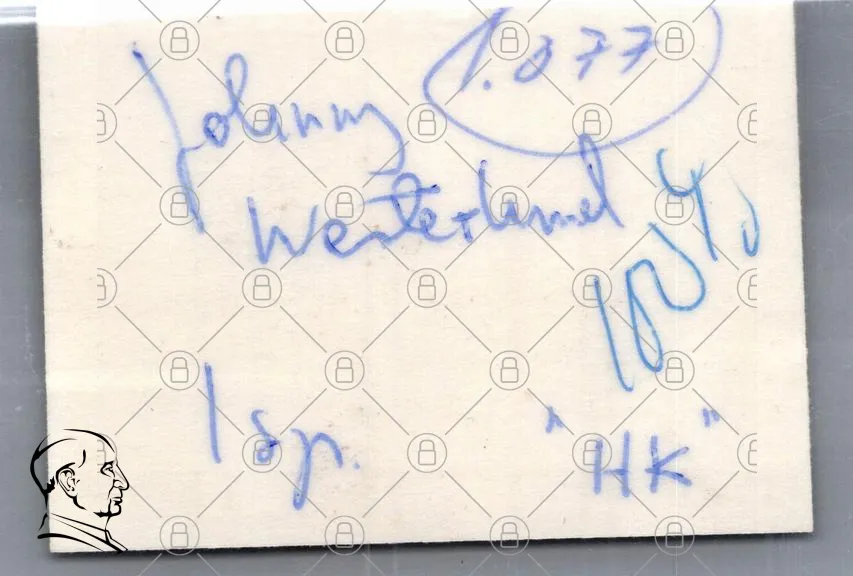 1.077
Johnny
Westerlund
1 sp.
"HK"